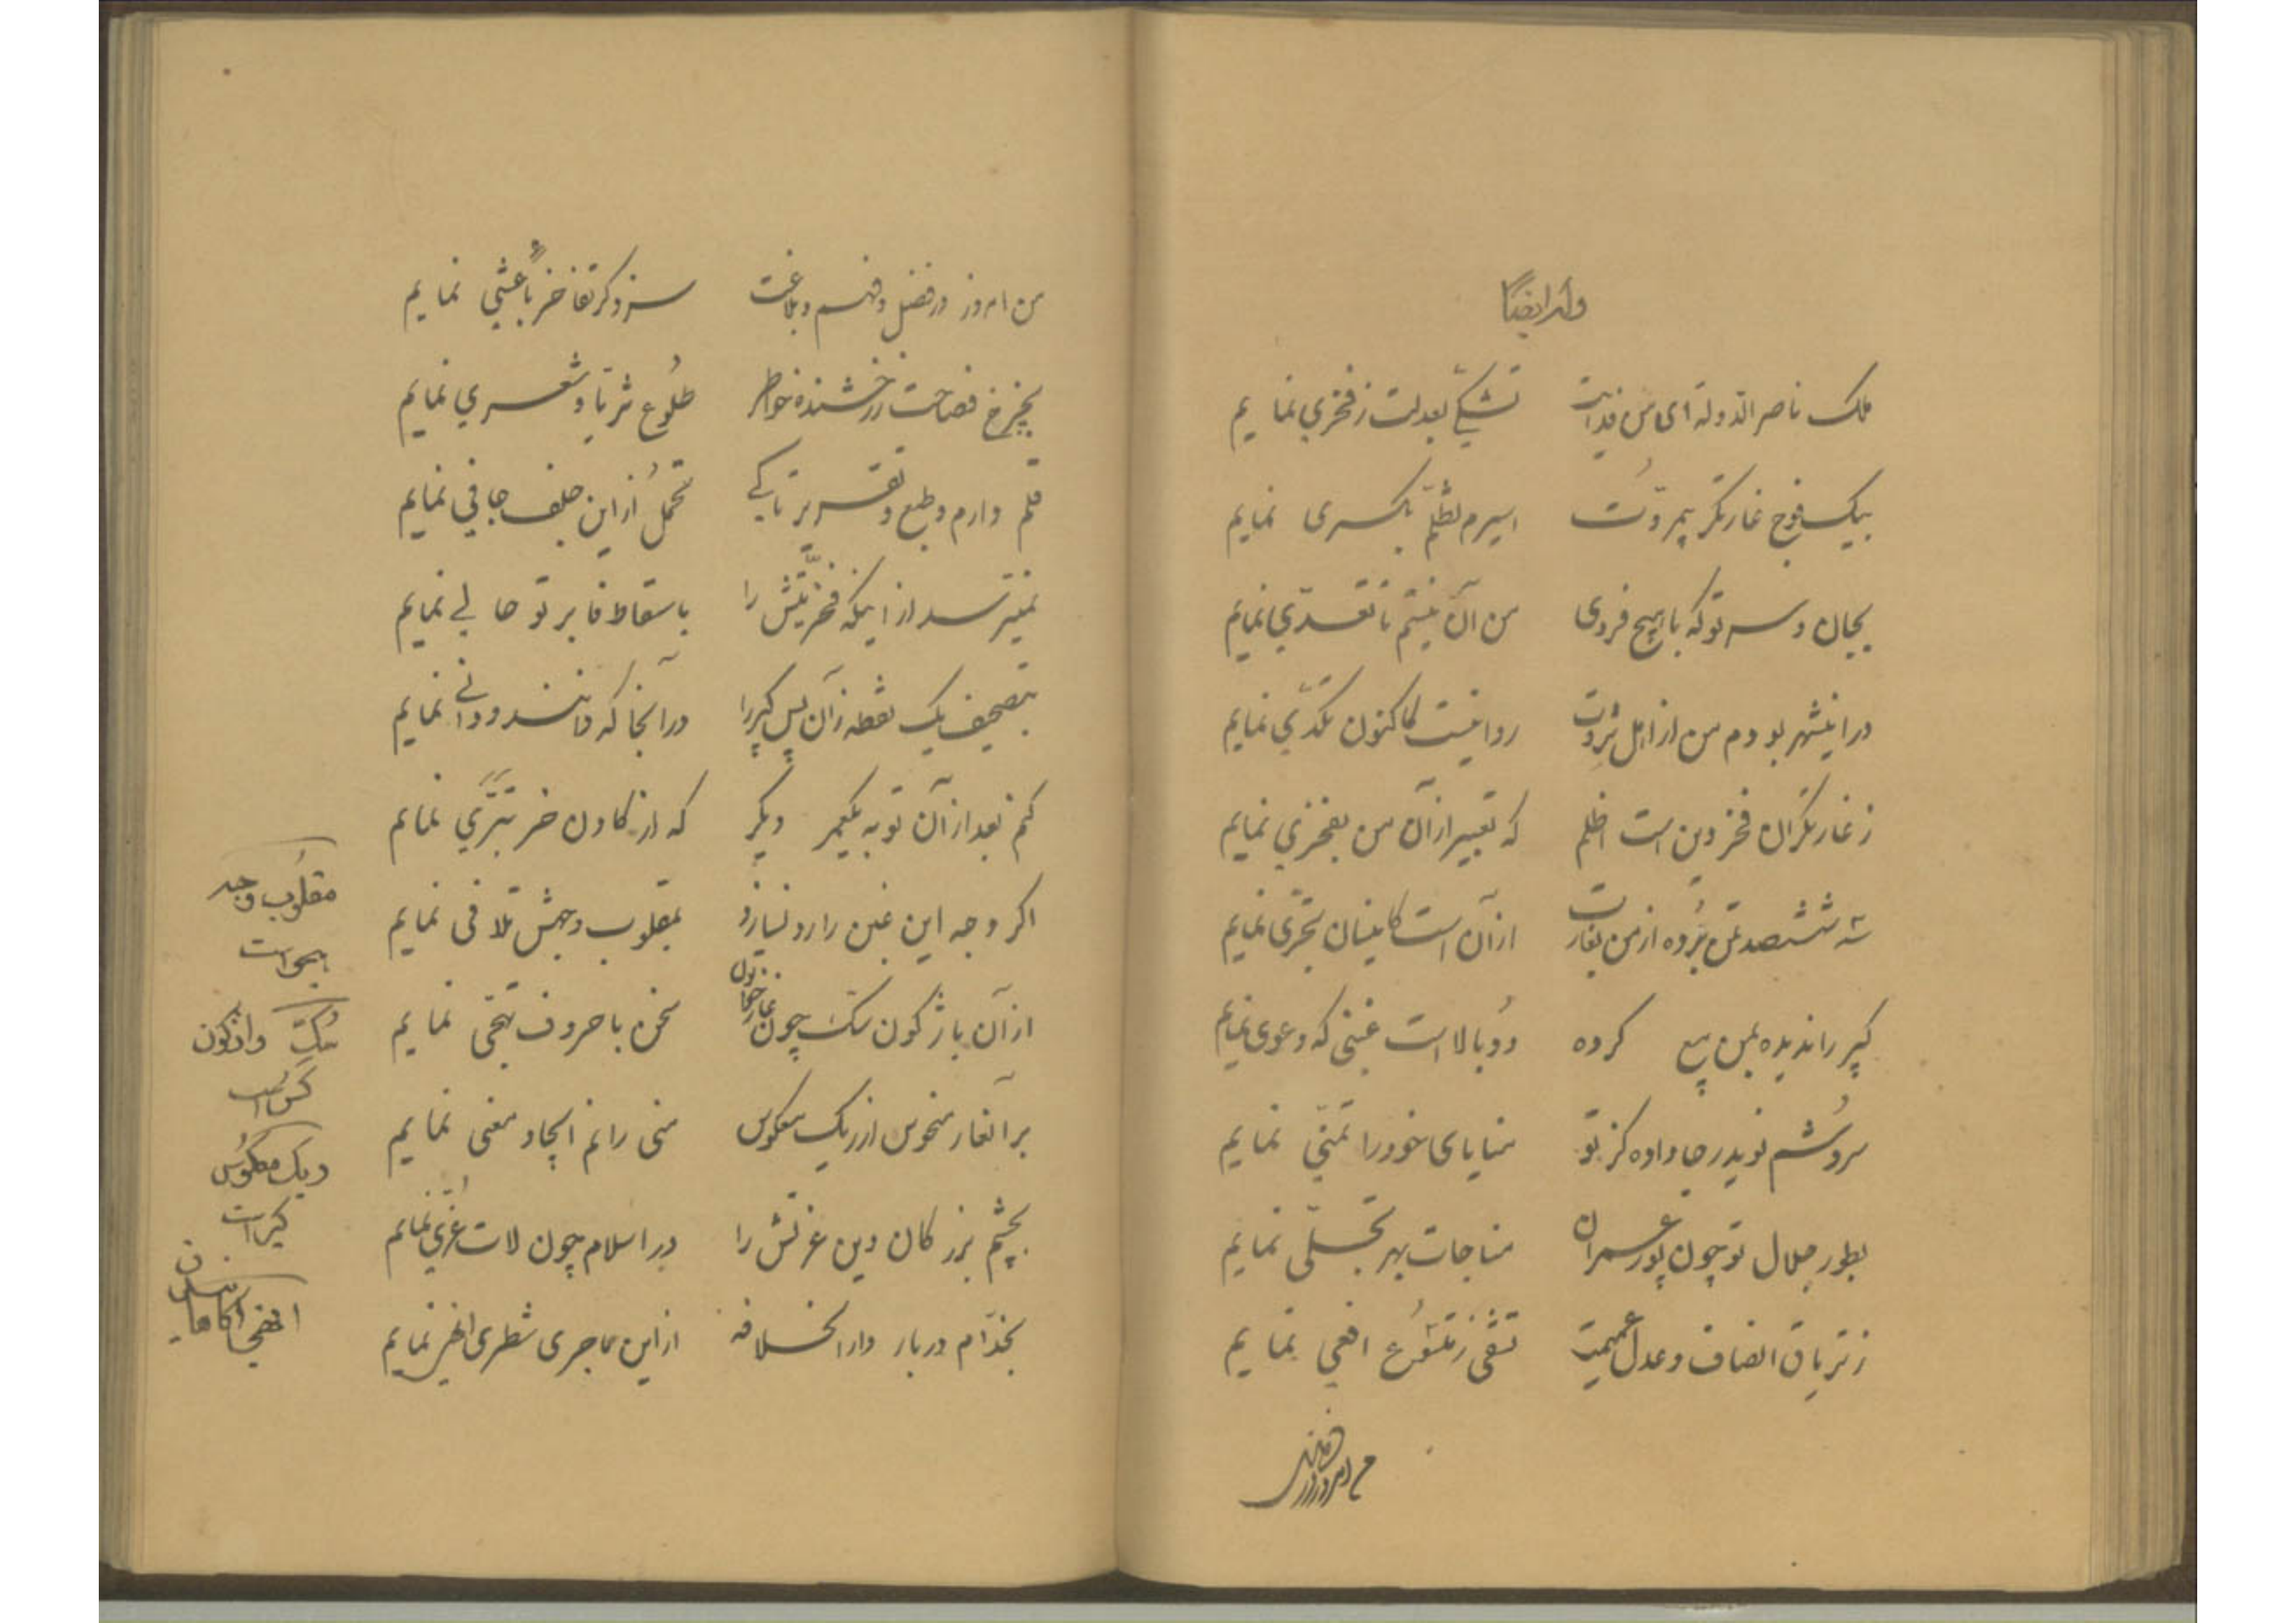 وله ایضاً
ملک ناصر الدوله ای من فدایت تشکّی بعدلت ز فخری نمایم
بیک فوج غارتگر بیمروّت اسیرم تظلّم بکسری نمایم
بجان و سر تو که با هیچ فردی من آن نیستم تا تعدّی نمایم
در اینشهر بودم من از اهل ثروت روا نیست کاکنون تکدّی نمایم
ز غارتگران فخر دین است اظلم که تعبیر از آن من بفخری نمایم
سه ششصد تمن برده از من بغارت از آن است کاینسان تجرّی نمایم
کپر را ندیده بمن بیع کرده دو بالا است غبنی که دعوی نمایم
سروشم نوید رجا داده کز تو منایای خود را تمنّی نمایم
بطور جلال تو چون پور عمران مناجات بهر تجلّی نمایم
ز تریاق انصاف و عدل عمیمت تشفّی ز تلسّع افعی نمایم
من امروز در
من امروز در فضل و فهم و بلاغت سزد گر تفاخر باعشی نمایم
بچرخ فصاحت ز رخشنده خواطر طلوع ثریّا و شعری نمایم
قلم دارم و طبع و تقریر تا کی تحمل از این جلف جافی نمایم
نمیترسد از اینکه فخریّتش را باسقاط فا بر تو حالی نمایم
بتصحیف یک نقطه زان پس کپر را در آنجا که دانند و دانی نمایم
کنم بعد از آن توبه یکبار دیگر که از گاو و خر تبرّی نمایم
اگر وجه این غبن را رد نسازد بمقلوب وجهش تلافی نمایم
از آن باژگون سک چون سخن با حروف تهجّی نمایم
بر آنغار منحوس از ریک معکوس منی رانم ایجاد معنی نمایم
بچشم بزرگان دین عزّتش را در اسلام چون لات و عزّی نمایم
بخدّام دربار دار الخلافه از این ماجری شطری انهی نمایم
مقلوب وجه
هجو است
سک واژگون
کس است
ریک معکوس
کیر است